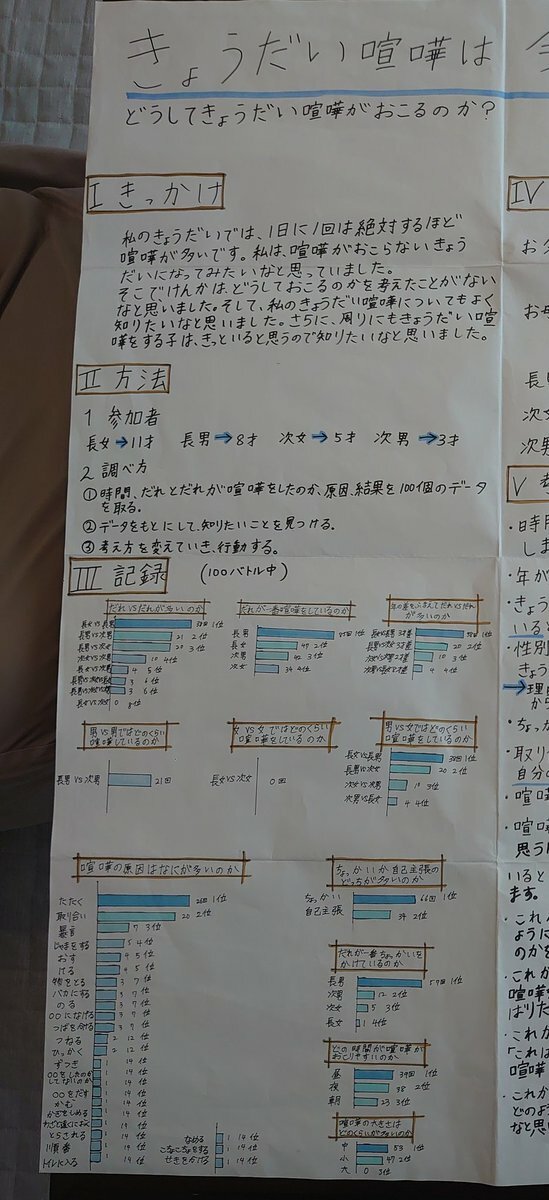 きょうだい喧嘩は
どうしてきょうだい喧嘩がおこるのか?
I きっかけ
私のきょうだいでは、1日に1回は絶対するほど
喧嘩が多いです。私は、喧嘩がおこらないきょう
だいになってみたいなと思っていました。
そこでけんかは、どうしておこるのかを考えたことがない
なと思いました。そして、私のきょうだい喧嘩についてもよく
知りたいなと思いました。さらに、周りにもきょうだい喧
嘩をする子は、きっといると思うので知りたいなと思いました。
II 方法
1 参加者
長女→11才 長男→8才 次女→5才 次男→3才
2 調べ方
①時間、だれとだれが喧嘩をしたのか、原因、結果を100個のデータ
を取る。
②データをもとにして、知りたいことを見つける。
③考え方を変えていき、行動する。
III 記録 (100バトル中)
だれVSだれが多いのか
長女VS長男 38回 1位
長男VS次男 21 2位
長男VS次女 20 3位
10 4位
4 5位
3 6位
3 6位
0 8位
だれが一番喧嘩をしているのか
長男
長女 47 2位
次男 42 3位
次女 34 4位
年の差をふまえてだれVSだれ
が多いのか
38回 1位
20 2位
10 3位
4 4位
男VS男ではどのくらい
喧嘩をしているのか
長男VS次男 21回
女VS女ではどのくらい
喧嘩をしているのか
長女VS次女 0回
男VS女ではどのくらい
喧嘩をしているのか
長女VS長男 38回 1位
長男VS次女 20 2位
10 3位
4 4位
喧嘩の原因はなにが多いのか
たたく 1位
取り合い 20 2位
暴言 7 3位
じゃまをする 5 4位
おす 4 5位
ける 4 5位
物をとる 3 7位
バカにする 3 7位
のる 3 7位
○○になげる 3 7位
つばを付ける 3 7位
つねる 2 12位
ひっかく 2 12位
ずつき 1 14位
○○をしたのか
してないのか 1 14位
○○をだす 1 14位
かむ 1 14位
かぎをしめる 1 14位
1 14位
とうされる 1 14位
順番 1 14位
トイレに入る 1 14位
なめる 1 14位
こちょこちょをする 1 14位
せきを付ける 1 14位
ちょっかいか自己主張の
どっちが多いのか
ちょっかい 66回 1位
自己主張 34 2位
だれが一番ちょっかいを
かけているのか
長男 57回 1位
次男 12 2位
次女 5 3位
長女 1 4位
どの時間が喧嘩が
おこりやすいのか
昼 39回 1位
夜 38 2位
朝 23 3位
喧嘩の大きさは
どのくらいが多いのか
中 53 1位
小 47 2位
大 0 3位
IV
お父
お母
長
次女
次男
V
・時間
しま
・年が
・きょう
いると
・性別
きょう
→理由
から
・ちょっか
・取り
自分の
・喧嘩
・喧嘩
思うん
いると
ます。
・これ
ように
のかを
・これか
喧嘩
ばりた
・これか
「これは
喧嘩
・これか
どのよ
なと思い